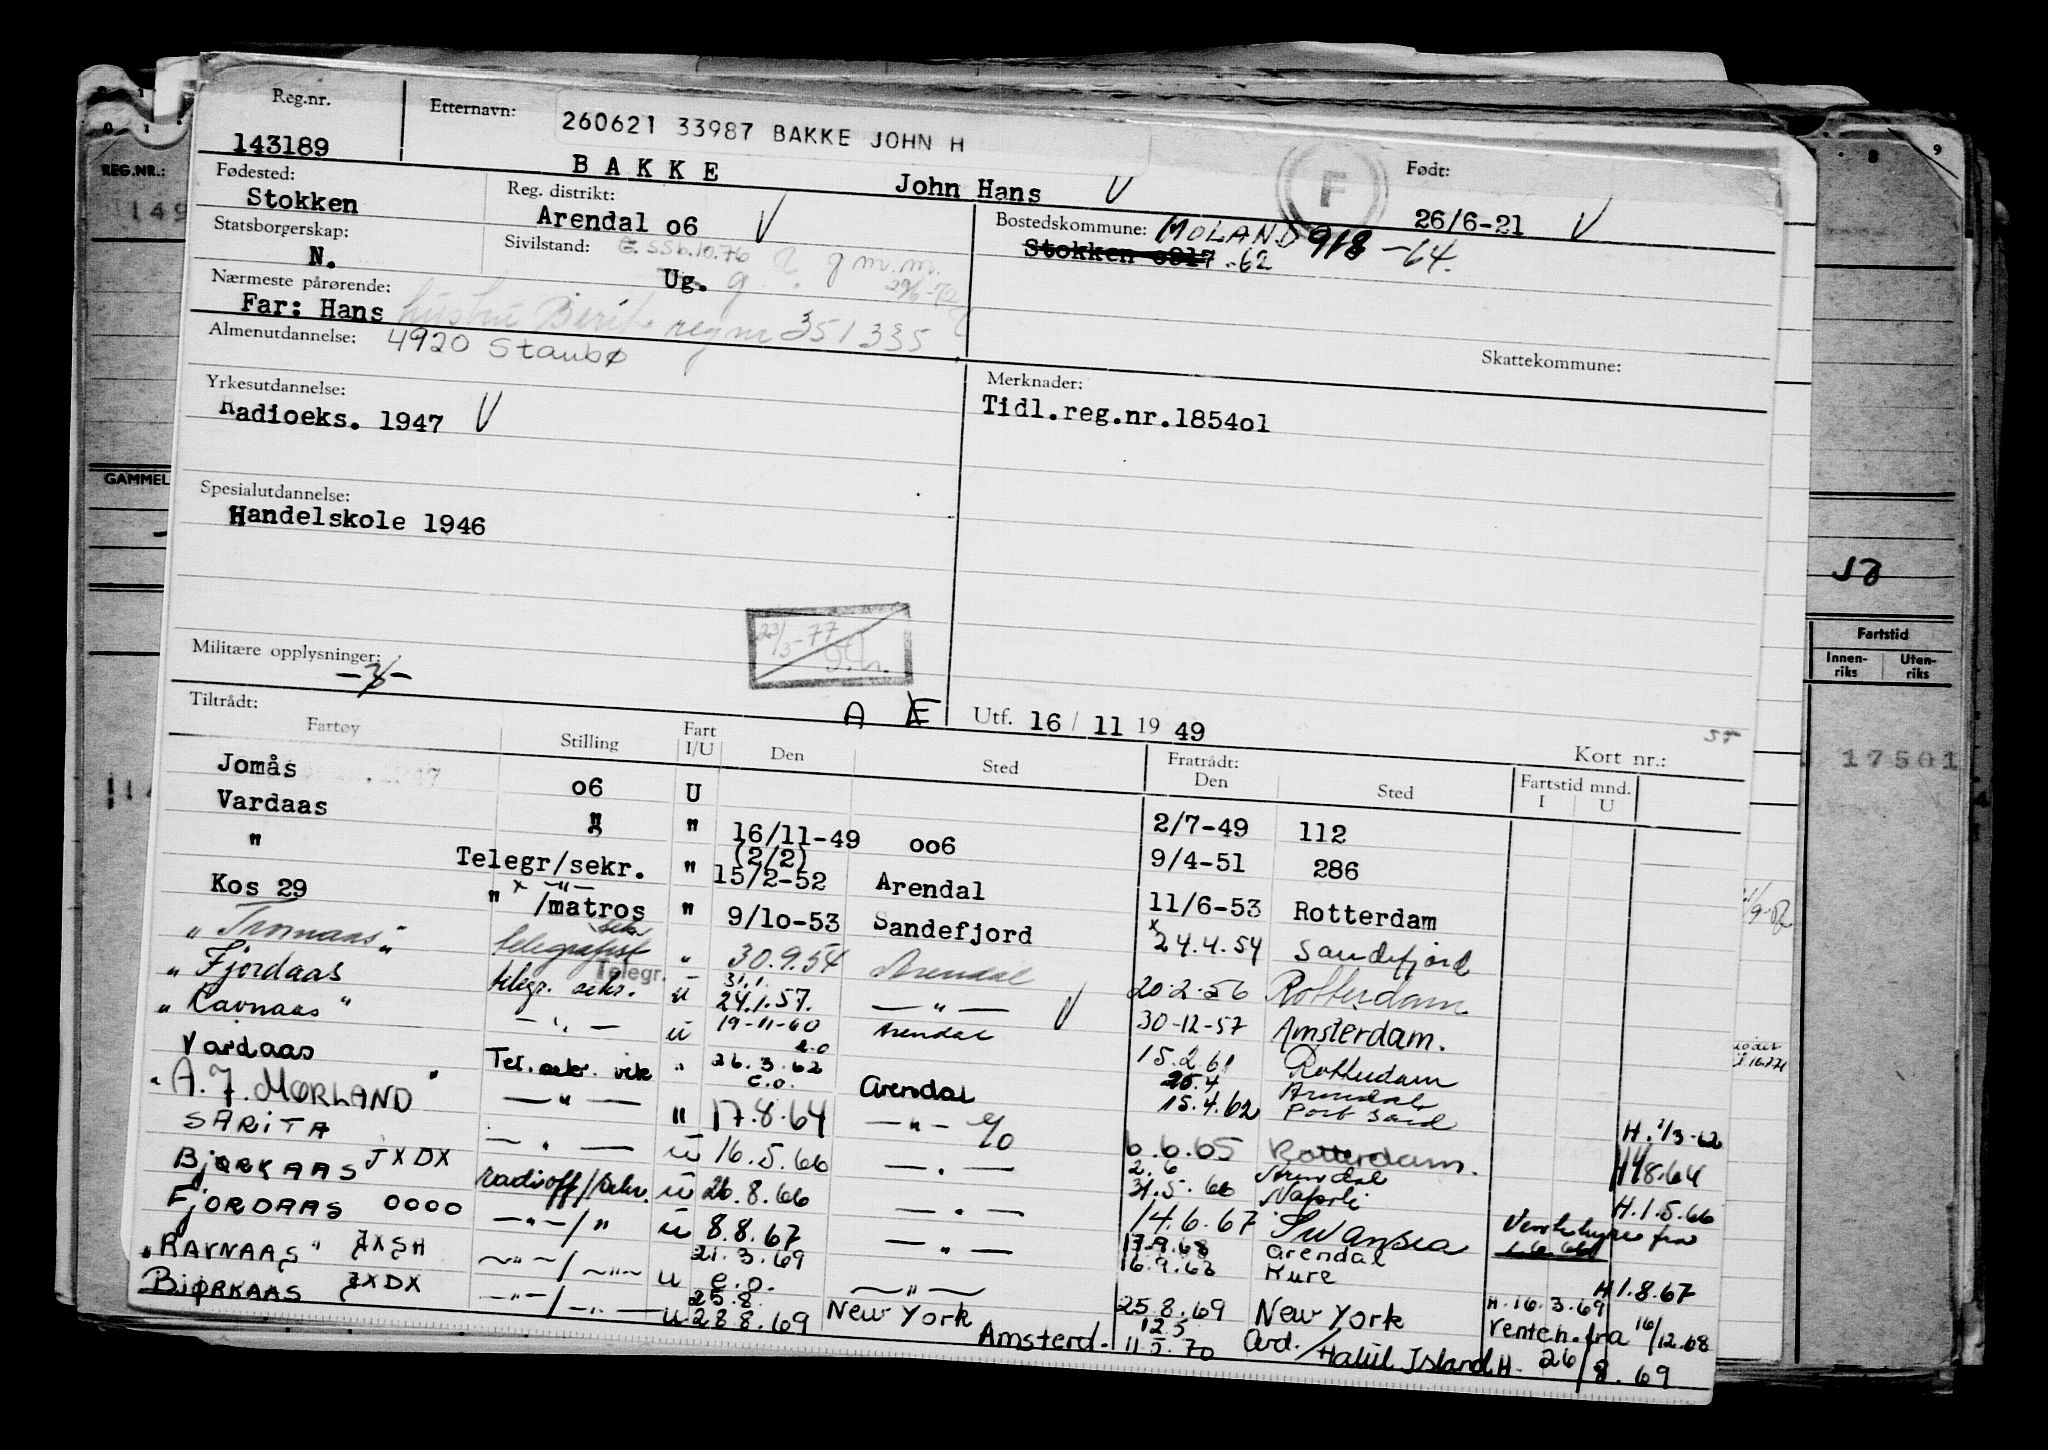 Reg.nr. Etternavn: 260621 33987 BAKKE JOHN H
143189 BAKKE John Hans V F Født: 26/6-21 V
Fødested: Stokken Reg. distrikt: Arendal o6 V Bostedskommune: MOLAND 918 -64.
Stokken o917 -62
Statsborgerskap: N. Sivilstand: Ug. g
Nærmeste pårørende: Far: Hans hustru Berit regnr 351335
Almenutdannelse: 4920 Staubø Skattekommune:
Yrkesutdannelse: Merknader:
Radioeks. 1947 V Tidl.reg.nr.1854o1
Spesialutdannelse:
Handelskole 1946
23/3-77
Militære opplysninger:
Tiltrådt: A E Utf. 16 / 11 19 49 Kort nr.:
Fartøy Stilling Fart I/U Den Sted Fratrådt: Den Sted Fartstid mnd. I U
Jomås o6 U 2/7-49 112
Vardaas " " 16/11-49 oo6 9/4-51 286
" Telegr/sekr. " (2/2) 15/2-52 Arendal 11/6-53 Rotterdam
Kos 29 " /matros " 9/10-53 Sandefjord 24.4.54 Sandefjord
" Tromaas " telegrafist sekr " 30.9.54 Arendal 20.2.56 Rotterdam
" Fjordaas telegr. sekr. Telegr. u 31.1. 24.1.57. — " — V 30-12-57 Amsterdam.
" Ravnaas " — " — u 19-11-60 e.o Arendal 15.2.61 Rotterdam
Vardaas " Tel. sekr. vik " 26.3.62 e.o. Arendal 25.4 15.4.62 Arendal Port Said H. 1/3-62
" A. J. MØRLAND — " — " 17.8.64 — " — e/o 6.6.65 Rotterdam.
SARITA — " — u 16.5.66 — " — 2.6 31.5.66 Arendal Napoli H.1.5.66
BJØRKAAS JXDX radioff/sekr. u 26.8.66 — " — 14.6.67 Swansea
FJORDAAS OOOO — " — / " u 8.8.67 — " — 17.9.68 16.9.68 Arendal Kure H 1.8.67
" RAVNAAS " JXSH — " — / — " — u 21.3.69 e.o. — " — 25.8.69 New York H. 16.3.69 Venteh. fra 16/12.68
BJØRKAAS JXDX — " — / — " — u 25.8. 28.8.69 New York Amsterd. 12.5 11.5.70 Ard./ H. 26/8.69
REG.NR.:
GAMMEL
Fartstid
Innen-riks Uten-riks
17501